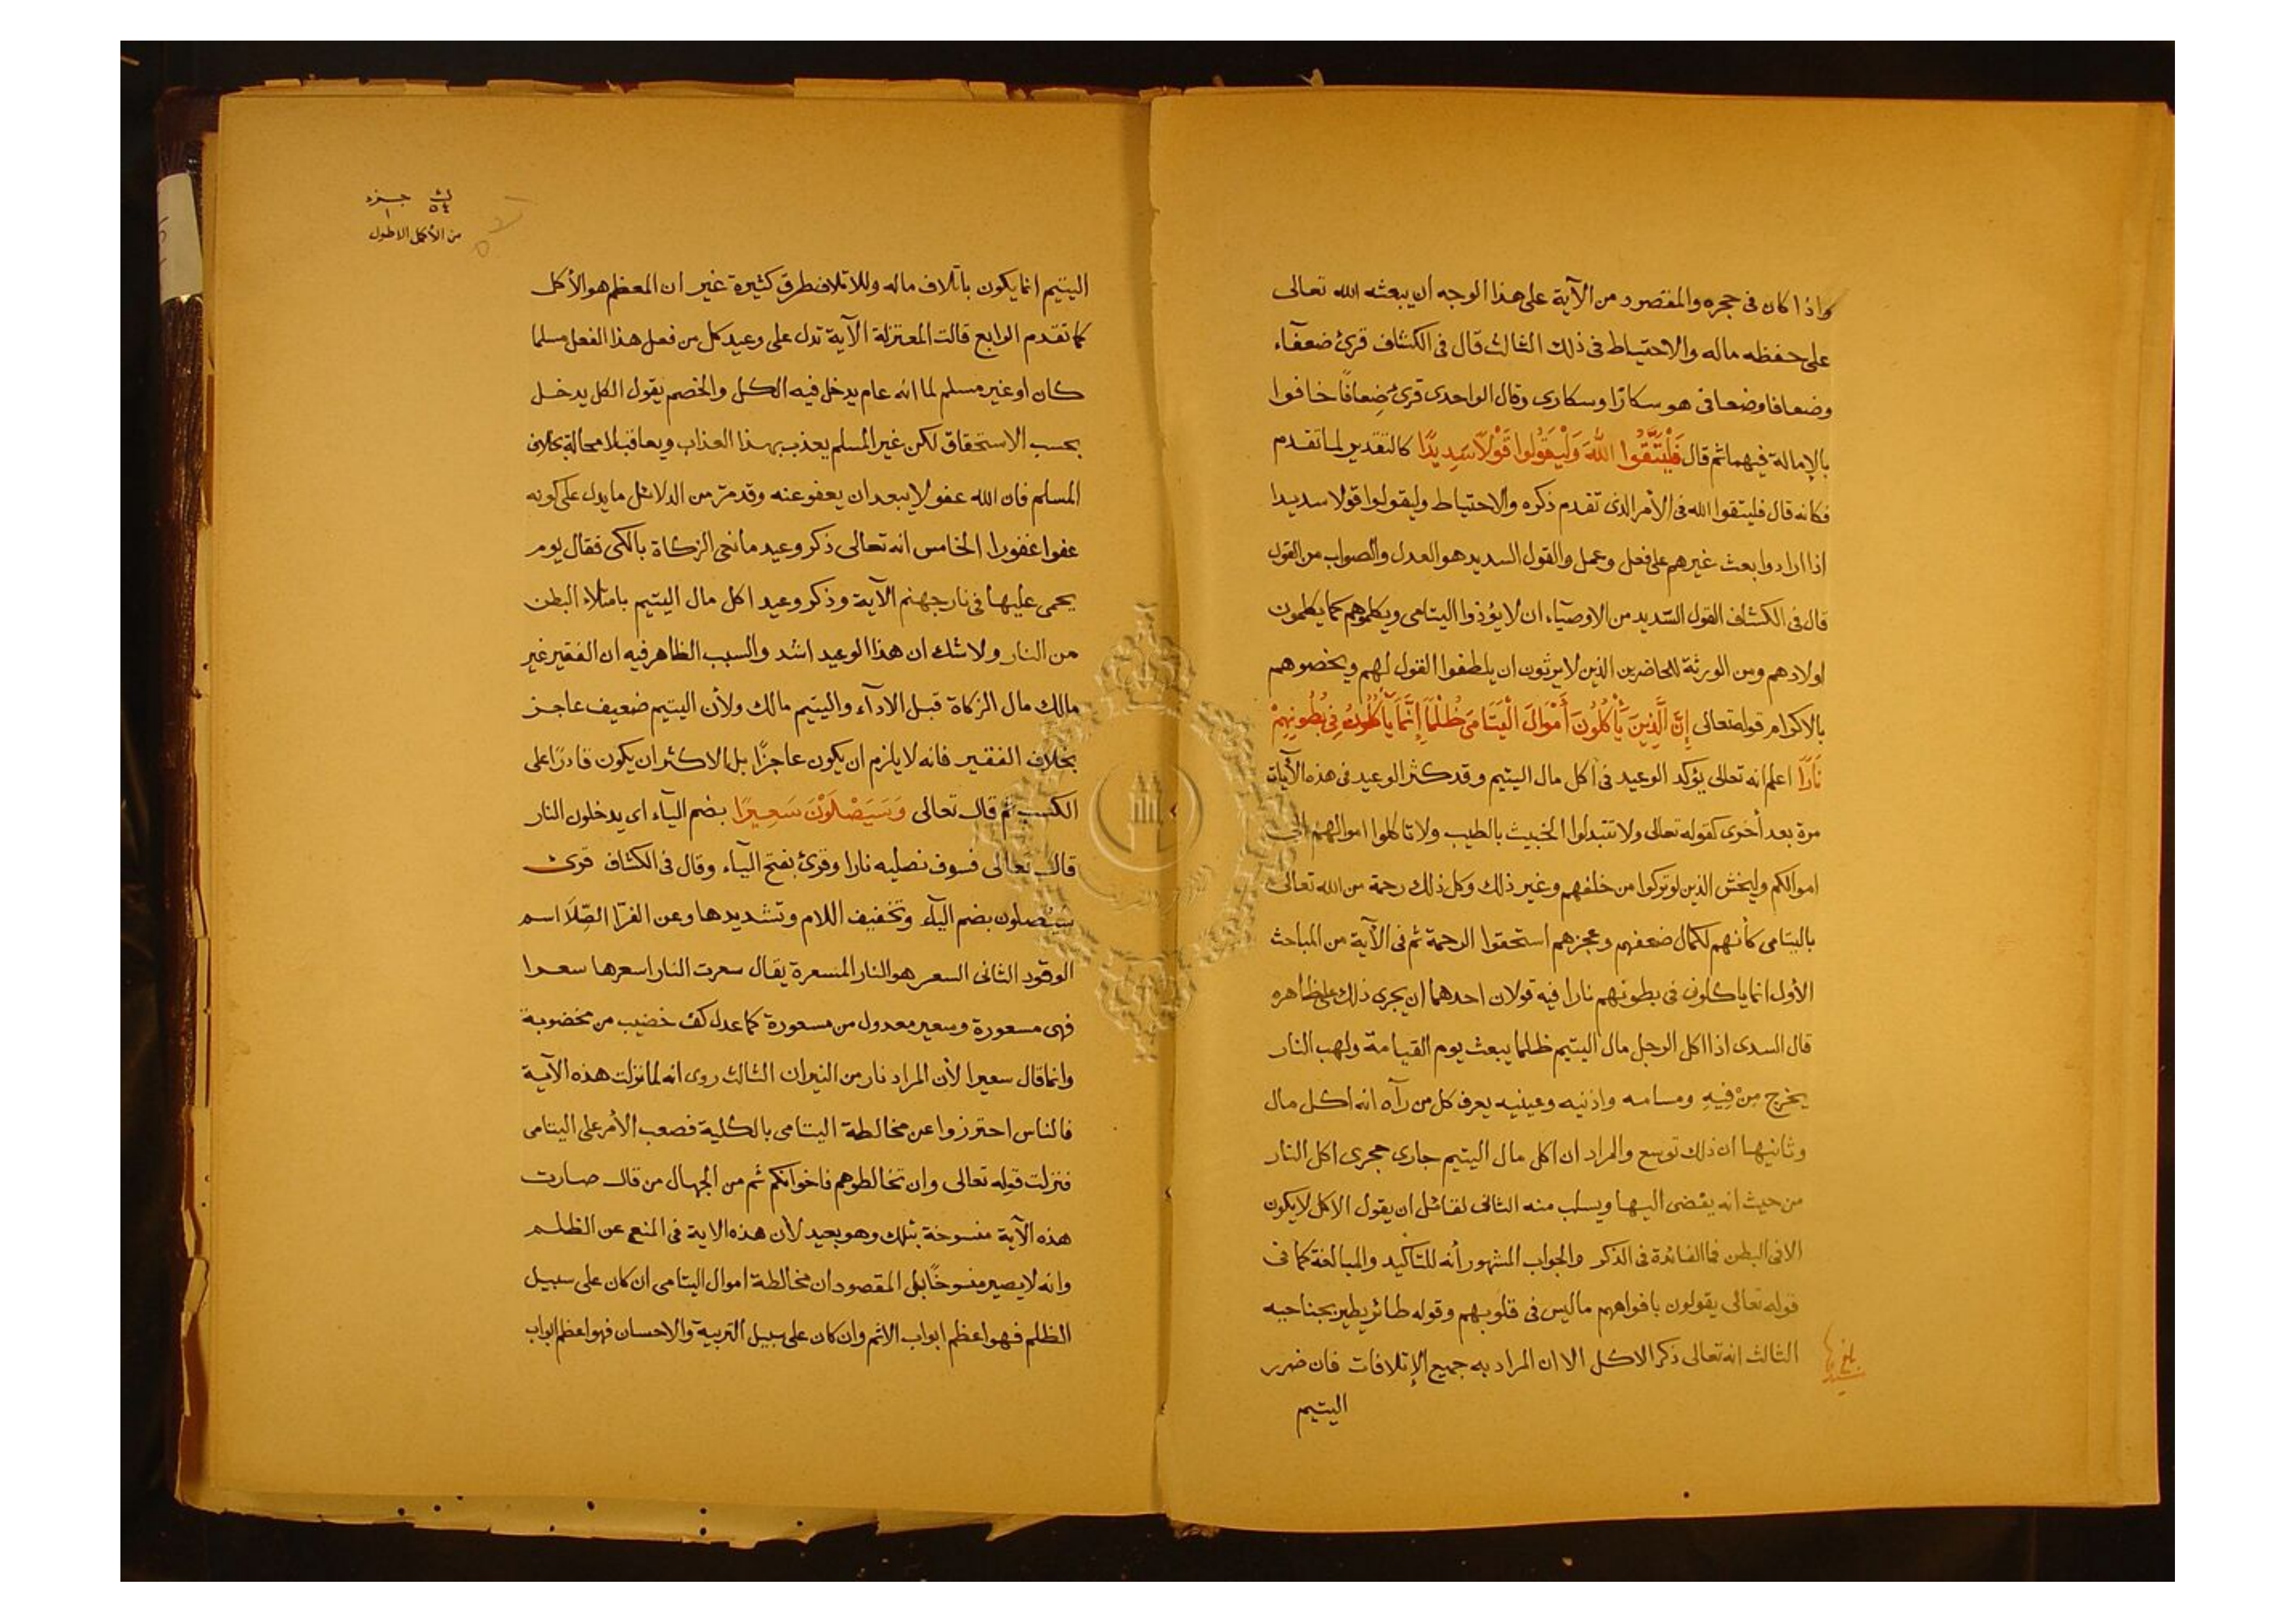 واذا كان فى حجره والمقصود من الآية على هذا الوجه ان يبعثه الله تعالى
على حفظه ماله والاحتياط فى ذلك الثالث قال فى الكشاف قرئ ضعفآء
وضعافا وضعافى هو سكارًا وسكارى وقال الواحدى قرئ ضِعافًا خافوا
بالإمالة فيهما ثم قال فَلْيَتَّقُوا اللهَ وَلْيَقُولُوا قَوْلًا سَدِيدًا كالتقدير لما تقدم
فكانه قال فليتقوا الله فى الأمر الذى تقدم ذكره والاحتياط وليقولوا قولا سديدا
اذا ارادوا بعث غيرهم على فعل وعمل والقول السديد هو العدل والصواب من القول
قال فى الكشاف القول السّديد من الاوصيآء ان لا يؤذوا اليتامى ويكلموهم كما يكلمون
اولادهم ومن الورثة للحاضرين الذين لا يرثون ان يلطفوا القول لهم ويخصوهم
بالاكرام قوله تعالى إِنَّ الَّذِينَ يَأْكُلُونَ أَمْوَالَ الْيَتَامَى ظُلْمًا إِنَّمَا يَأْكُلُونَ فِى بُطُونِهِمْ
نَارًا اعلم انه تعالى يؤكد الوعيد فى اكل مال اليتيم وقد كثر الوعيد فى هذه الآيات
مرة بعد أخرى كقوله تعالى ولا تتبدلوا الخبيث بالطيب ولا تاكلوا اموالهم الى
اموالكم وليخش الذين لو تركوا من خلفهم وغير ذلك وكل ذلك رحمة من الله تعالى
باليتامى كأنهم لكمال ضعفهم وعجزهم استحقوا الرحمة ثم فى الآية من المباحث
الأول انما ياكلون فى بطونهم نارا فيه قولان احدهما ان يجرى ذلك على ظاهره
قال السدى اذا اكل الرجل مال اليتيم ظلما يبعث يوم القيامة ولهب النار
يخرج مِنْ فِيهِ ومسامه واذنيه وعينيه يعرف كل من رآه انه اكل مال
وثانيها ان ذلك توسع والمراد ان اكل مال اليتيم جارى مجرى اكل النار
من حيث انه يفضى اليها ويسلب منه الثانى لقائل ان يقول الاكل لا يكون
الا فى البطن فما الفائدة فى الذكر والجواب المشهور أنه للتاكيد والمبالغة كما فى
قوله تعالى يقولون بافواههم ما ليس فى قلوبهم وقوله طائر يطير بجناحيه
الثالث انه تعالى ذكر الاكل الا ان المراد به جميع الإتلافات فان ضرر
اليتيم
ث جزء
٥٤ ١
من الأكمل الاطول
اليتيم انما يكون باتلاف ماله وللاتلاف طرق كثيرة غير ان المعظم هو الأكل
كما تقدم الرابع قالت المعتزلة الآية تدل على وعيد كل من فعل هذا الفعل مسلما
كان او غير مسلم لما انه عام يدخل فيه الكل والخصم يقول الكل يدخل
بحسب الاستحقاق لكن غير المسلم يعذب بهذا العذاب ويعاقب لا محالة بخلاف
المسلم فان الله عفو لا يبعد ان يعفو عنه وقد مرّ من الدلائل ما يدل على كونه
عفوا غفورا الخامس انه تعالى ذكر وعيد مانعى الزكاة بالكى فقال يوم
يحمى عليها فى نار جهنم الآية وذكر وعيد اكل مال اليتيم بامتلاء البطن
من النار ولا شك ان هذا الوعيد اشد والسبب الظاهر فيه ان الفقير غير
مالك مال الزكاة قبل الادآء واليتيم مالك ولأن اليتيم ضعيف عاجز
بخلاف الفقير فانه لا يلزم ان يكون عاجزًا بل الاكثر ان يكون قادرًا على
الكسب ثم قال تعالى وَسَيَصْلَوْنَ سَعِيرًا بضم اليآء اى يدخلون النار
قال تعالى فسوف نصليه نارا وقرئ بفتح اليآء وقال فى الكشاف قرئ
سيُصلون بضم اليآء وتخفيف اللام وتشديدها وعن الفرّا الصّلَا اسم
الوقود الثانى السعر هو النار المسعرة يقال سعرت النار اسعرها سعرا
فهى مسعورة وسعير معدول من مسعورة كما عدل كف خضيب من مخضوبة
وانما قال سعيرا لأن المراد نار من النيران الثالث روى انه لما نزلت هذه الآية
فالناس احترزوا عن مخالطة اليتامى بالكلية فصعب الأمر على اليتامى
فنزلت قوله تعالى وان تخالطوهم فاخوانكم ثم من الجهال من قال صارت
هذه الآية منسوخة بتلك وهو بعيد لأن هذه الاية فى المنع عن الظلم
وانه لا يصير منسوخًا بل المقصود ان مخالطة اموال اليتامى ان كان على سبيل
الظلم فهو اعظم ابواب الاثم وان كان على سبيل التربية والاحسان فهو اعظم ابواب